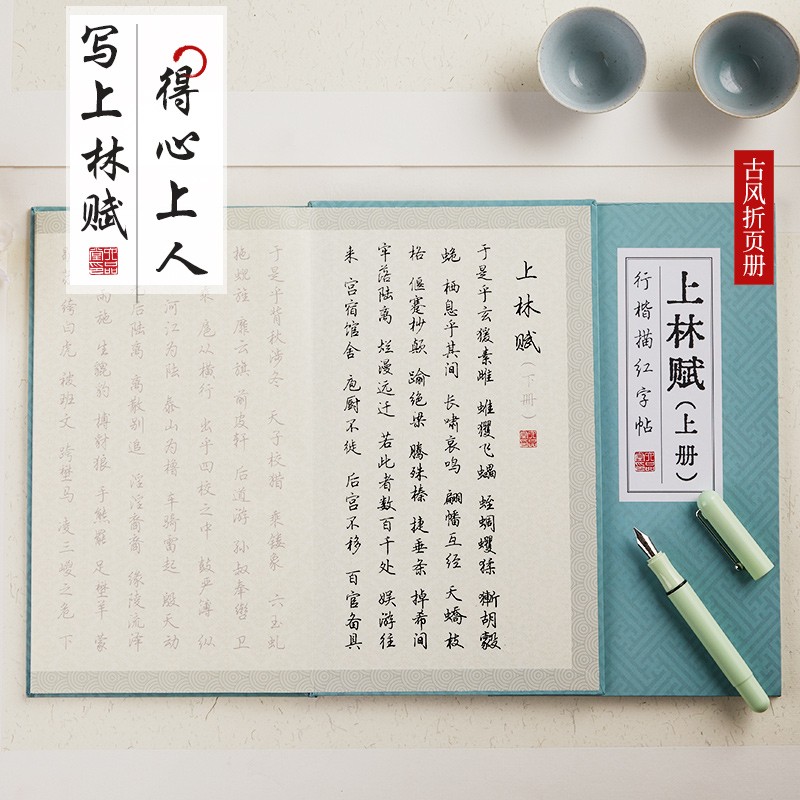 写上林赋
得心上人
古风折页册
上林赋（上册）
行楷描红字帖
上林赋（下册）
于是乎玄猨素雌 蜼玃飞蠝 蛭蜩蠼猱 獑胡豰
蛫 栖息乎其间 长啸哀鸣 翩幡互经 夭蟜枝
格 偃蹇杪颠 踰绝梁 腾殊榛 捷垂条 掉希间
牢落陆离 烂漫远迁 若此者数百千处 娱游往
来 宫宿馆舍 庖厨不徙 后宫不移 百官备具
于是乎背秋涉冬 天子校猎 乘镂象 六玉虬
拖蜺旌 靡云旗 前皮轩 后道游 孙叔奉辔 卫
乘 扈从横行 出乎四校之中 鼓严簿 纵
河江为阹 泰山为橹 车骑雷起 殷天动
后陆离 离散别追 淫淫裔裔 缘陵流泽
雨施 生貔豹 搏豺狼 手熊罴 足壄羊 蒙
绔白虎 被班文 跨壄马 凌三嵕之危 下